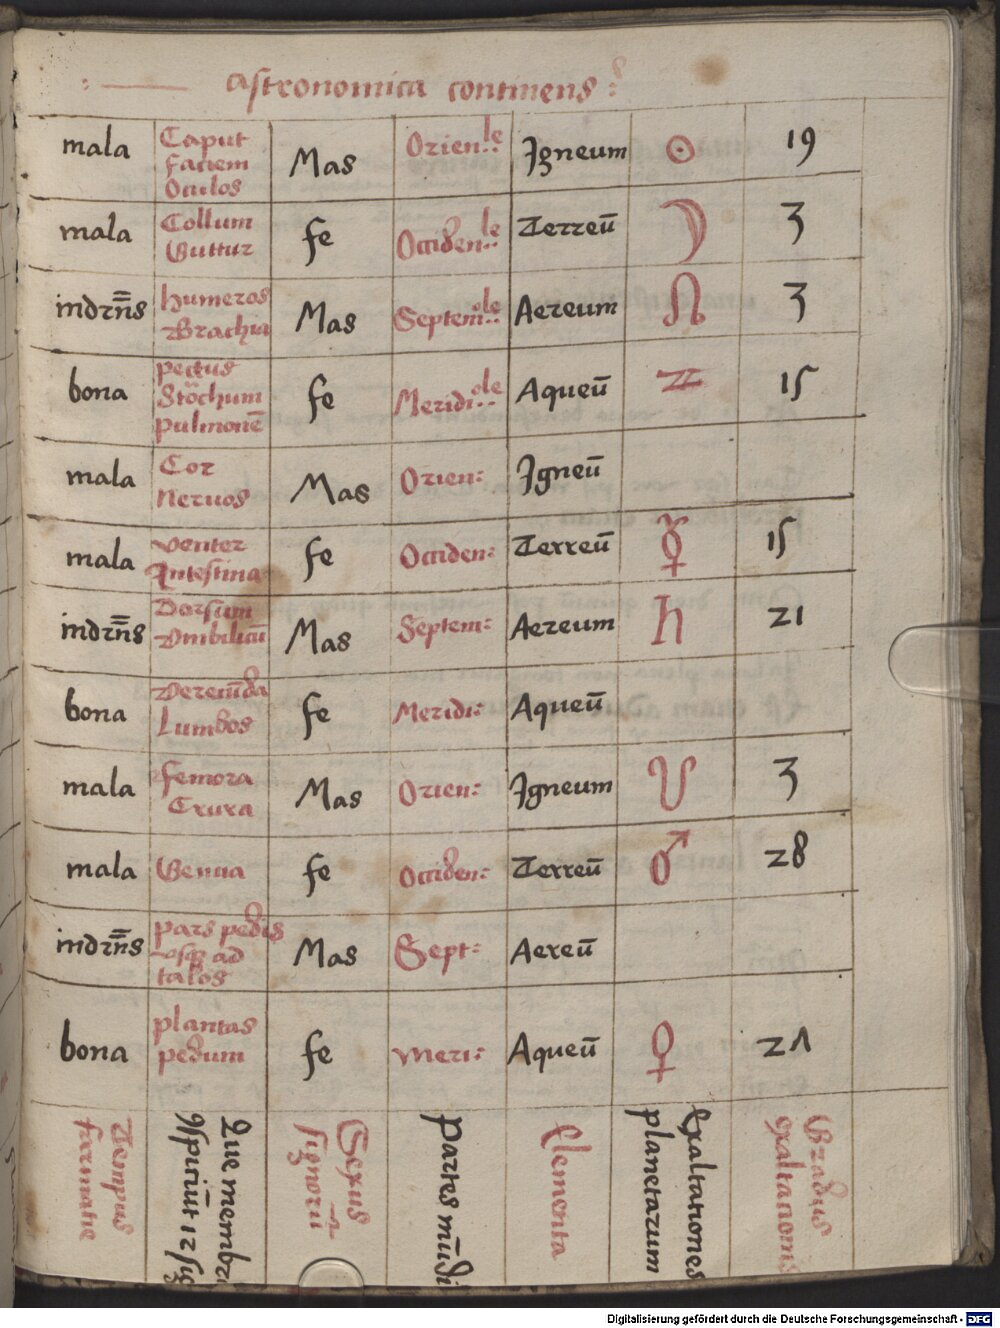 astronomica continens :
mala Caput faciem Oculos Mas Orien:le Igneum ☉ 19
mala Collum Guttur fe Occiden:le Terreū ☽ 3
indrn̄s humeros Brachia Mas Septem:le Aereum ☊ 3
bona pectus Stōchum pulmonē fe Meridi:ole Aqueū ♃ 15
mala Cor Neruos Mas Orien: Igneū
mala venter Intestina fe Occiden: Terreū ☿ 15
indrn̄s Dorsum Vmbilicū Mas Septem: Aereum ♄ 21
bona Verenda Lumbos fe Meridi: Aqueū
mala femora Crura Mas Orien: Igneum ☋ 3
mala Genua fe Occiden: Terreū ♂ 28
indrn̄s pars pedis vsq ad talos Mas Sept: Aereū
bona plantas pedum fe Meri: Aqueū ♀ 21
Tempus farmatie
Que membra 12 sig
Sexus signorū
Partes mūdi
Elementa
Exaltationes planetarum
Gradus exaltationis
Digitalisierung gefördert durch die Deutsche Forschungsgemeinschaft - DFG